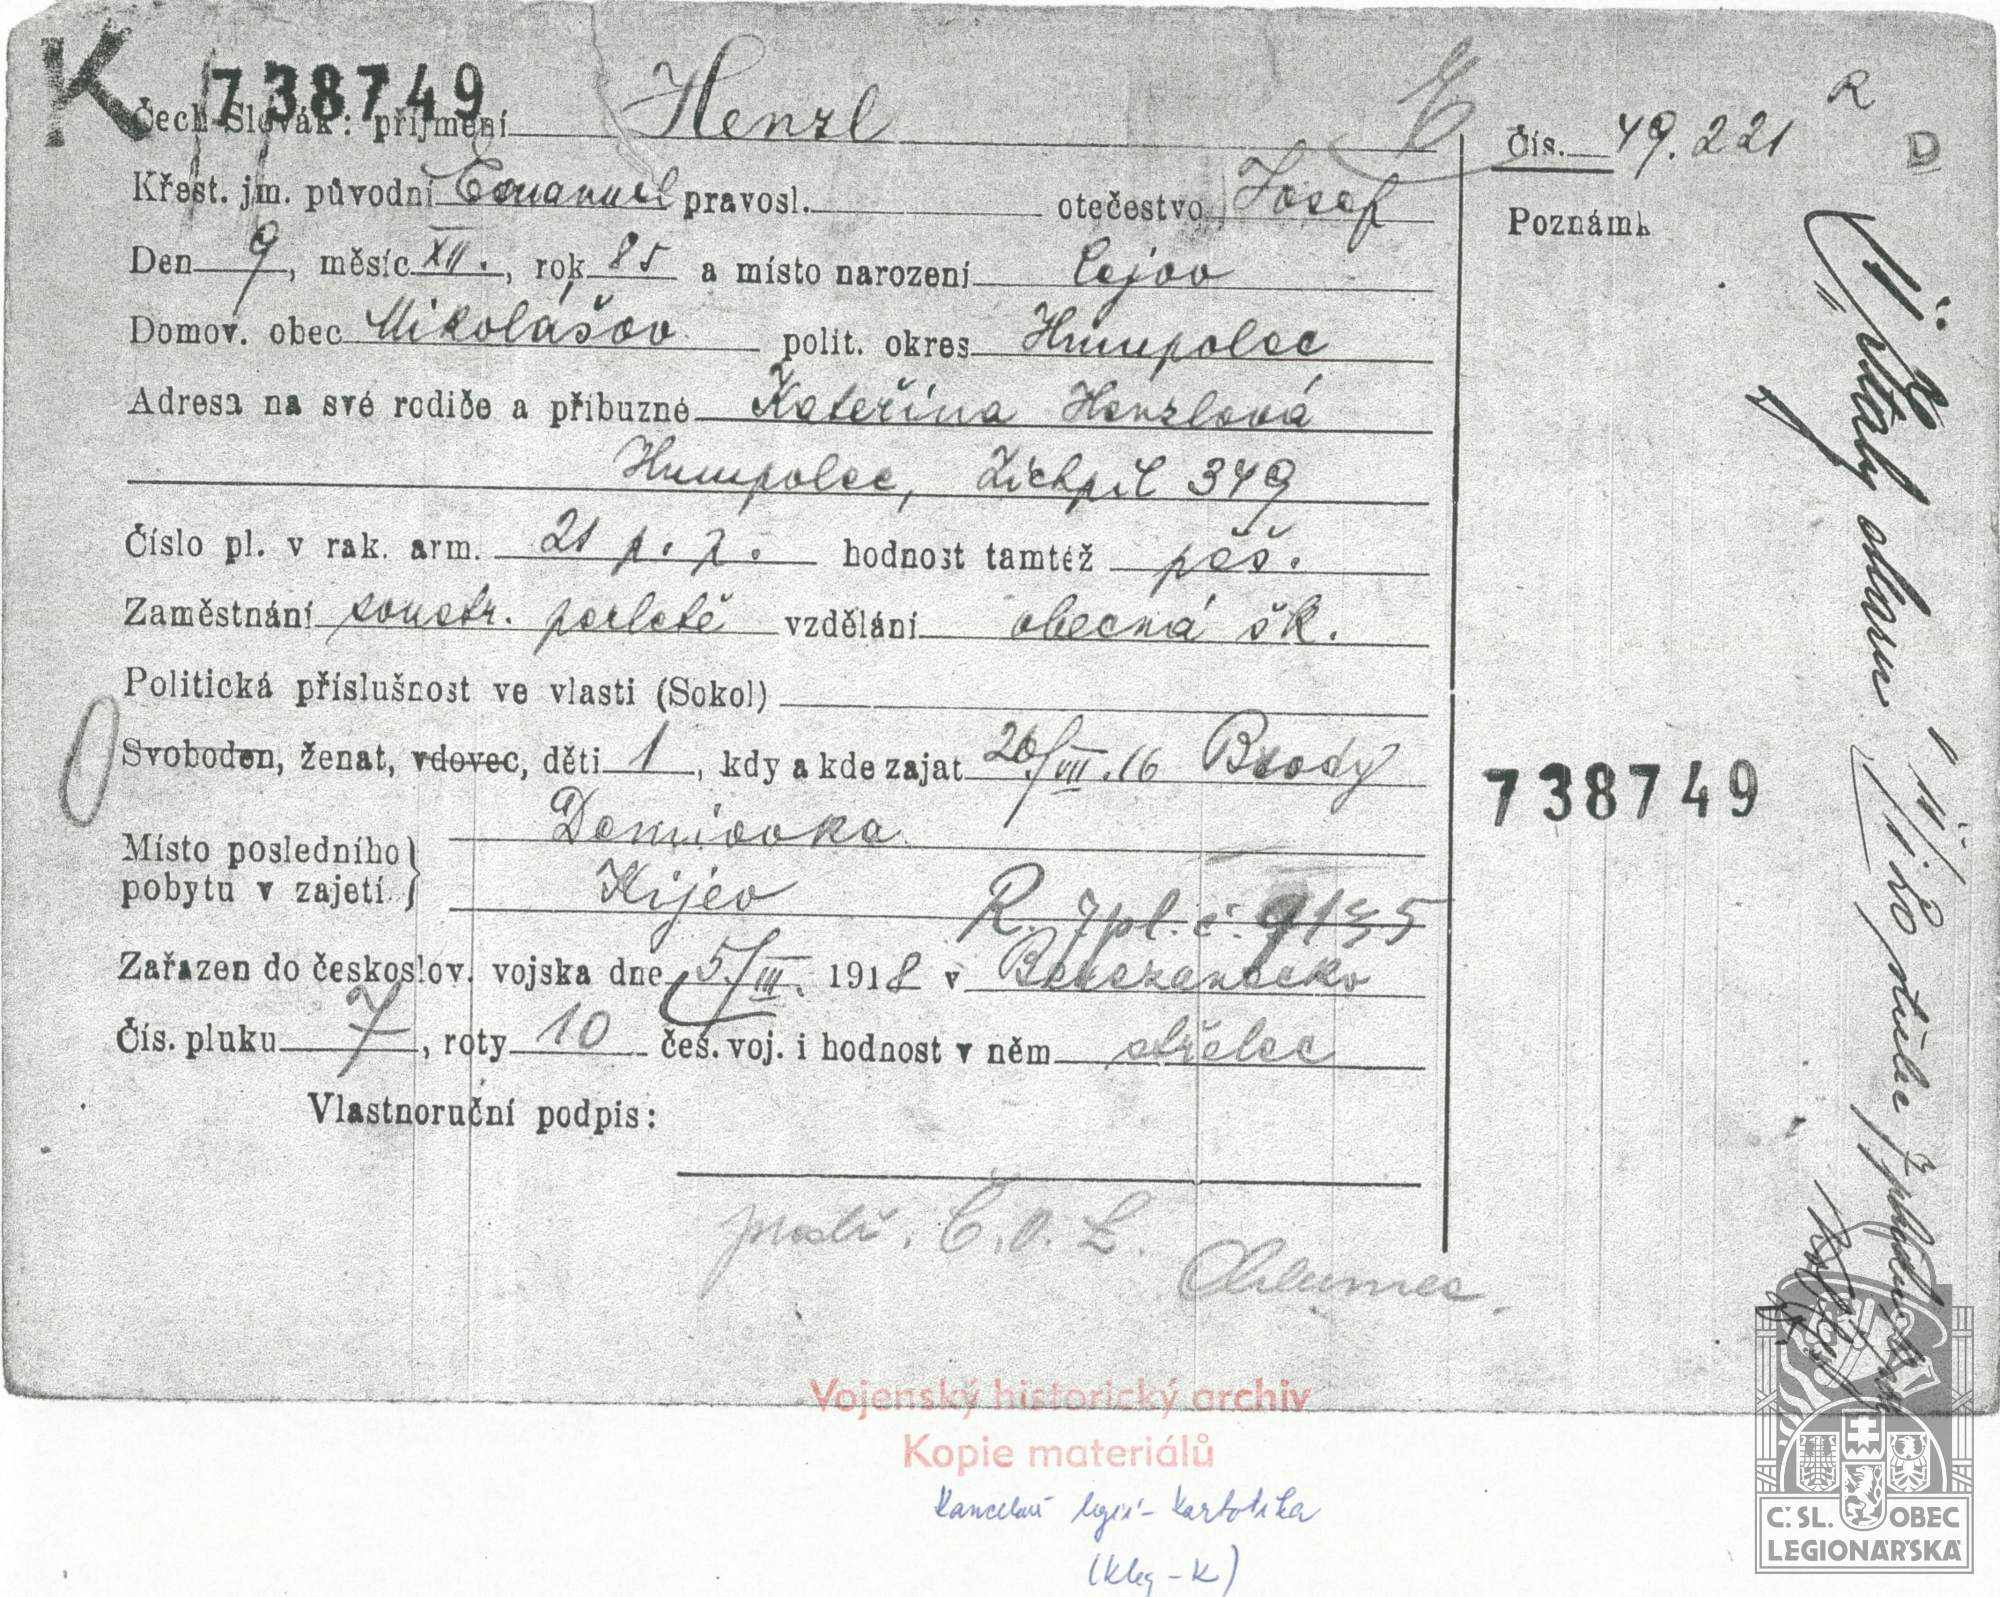 K 738749
Čech-Slovák: příjmení Henzl
Křest. jm. původní Emanuel pravosl. otečestvo Josef
Den 9, měsíc XII., rok 85 a místo narození Cejov
Domov. obec Mikolášov polit. okres Humpolec
Adresa na své rodiče a příbuzné Kateřina Henzlová
Humpolec, Zichpil 349
Číslo pl. v rak. arm. 21 p. p. hodnost tamtéž pěš.
Zaměstnání soustr. perletě vzdělání obecná šk.
Politická příslušnost ve vlasti (Sokol)
Svoboden, ženat, vdovec, děti 1, kdy a kde zajat 26/VII. 16 Brody
Místo posledního pobytu v zajetí. Demiovka
Kijev R. 7 pl. č. 9135
Zařazen do českoslov. vojska dne 5/III. 1918 v
Čís. pluku 7, roty 10 čes. voj. i hodnost v něm střelec
Vlastnoruční podpis:
Č. O. L.
Chlumec.
E
R
D
Čís. 49.221
Poznámk
738749
Vojenský historický archiv
Kopie materiálů
Kancelář legií - Kartotéka
(Kleg - K)
Č. SL. OBEC
LEGIONÁŘSKÁ